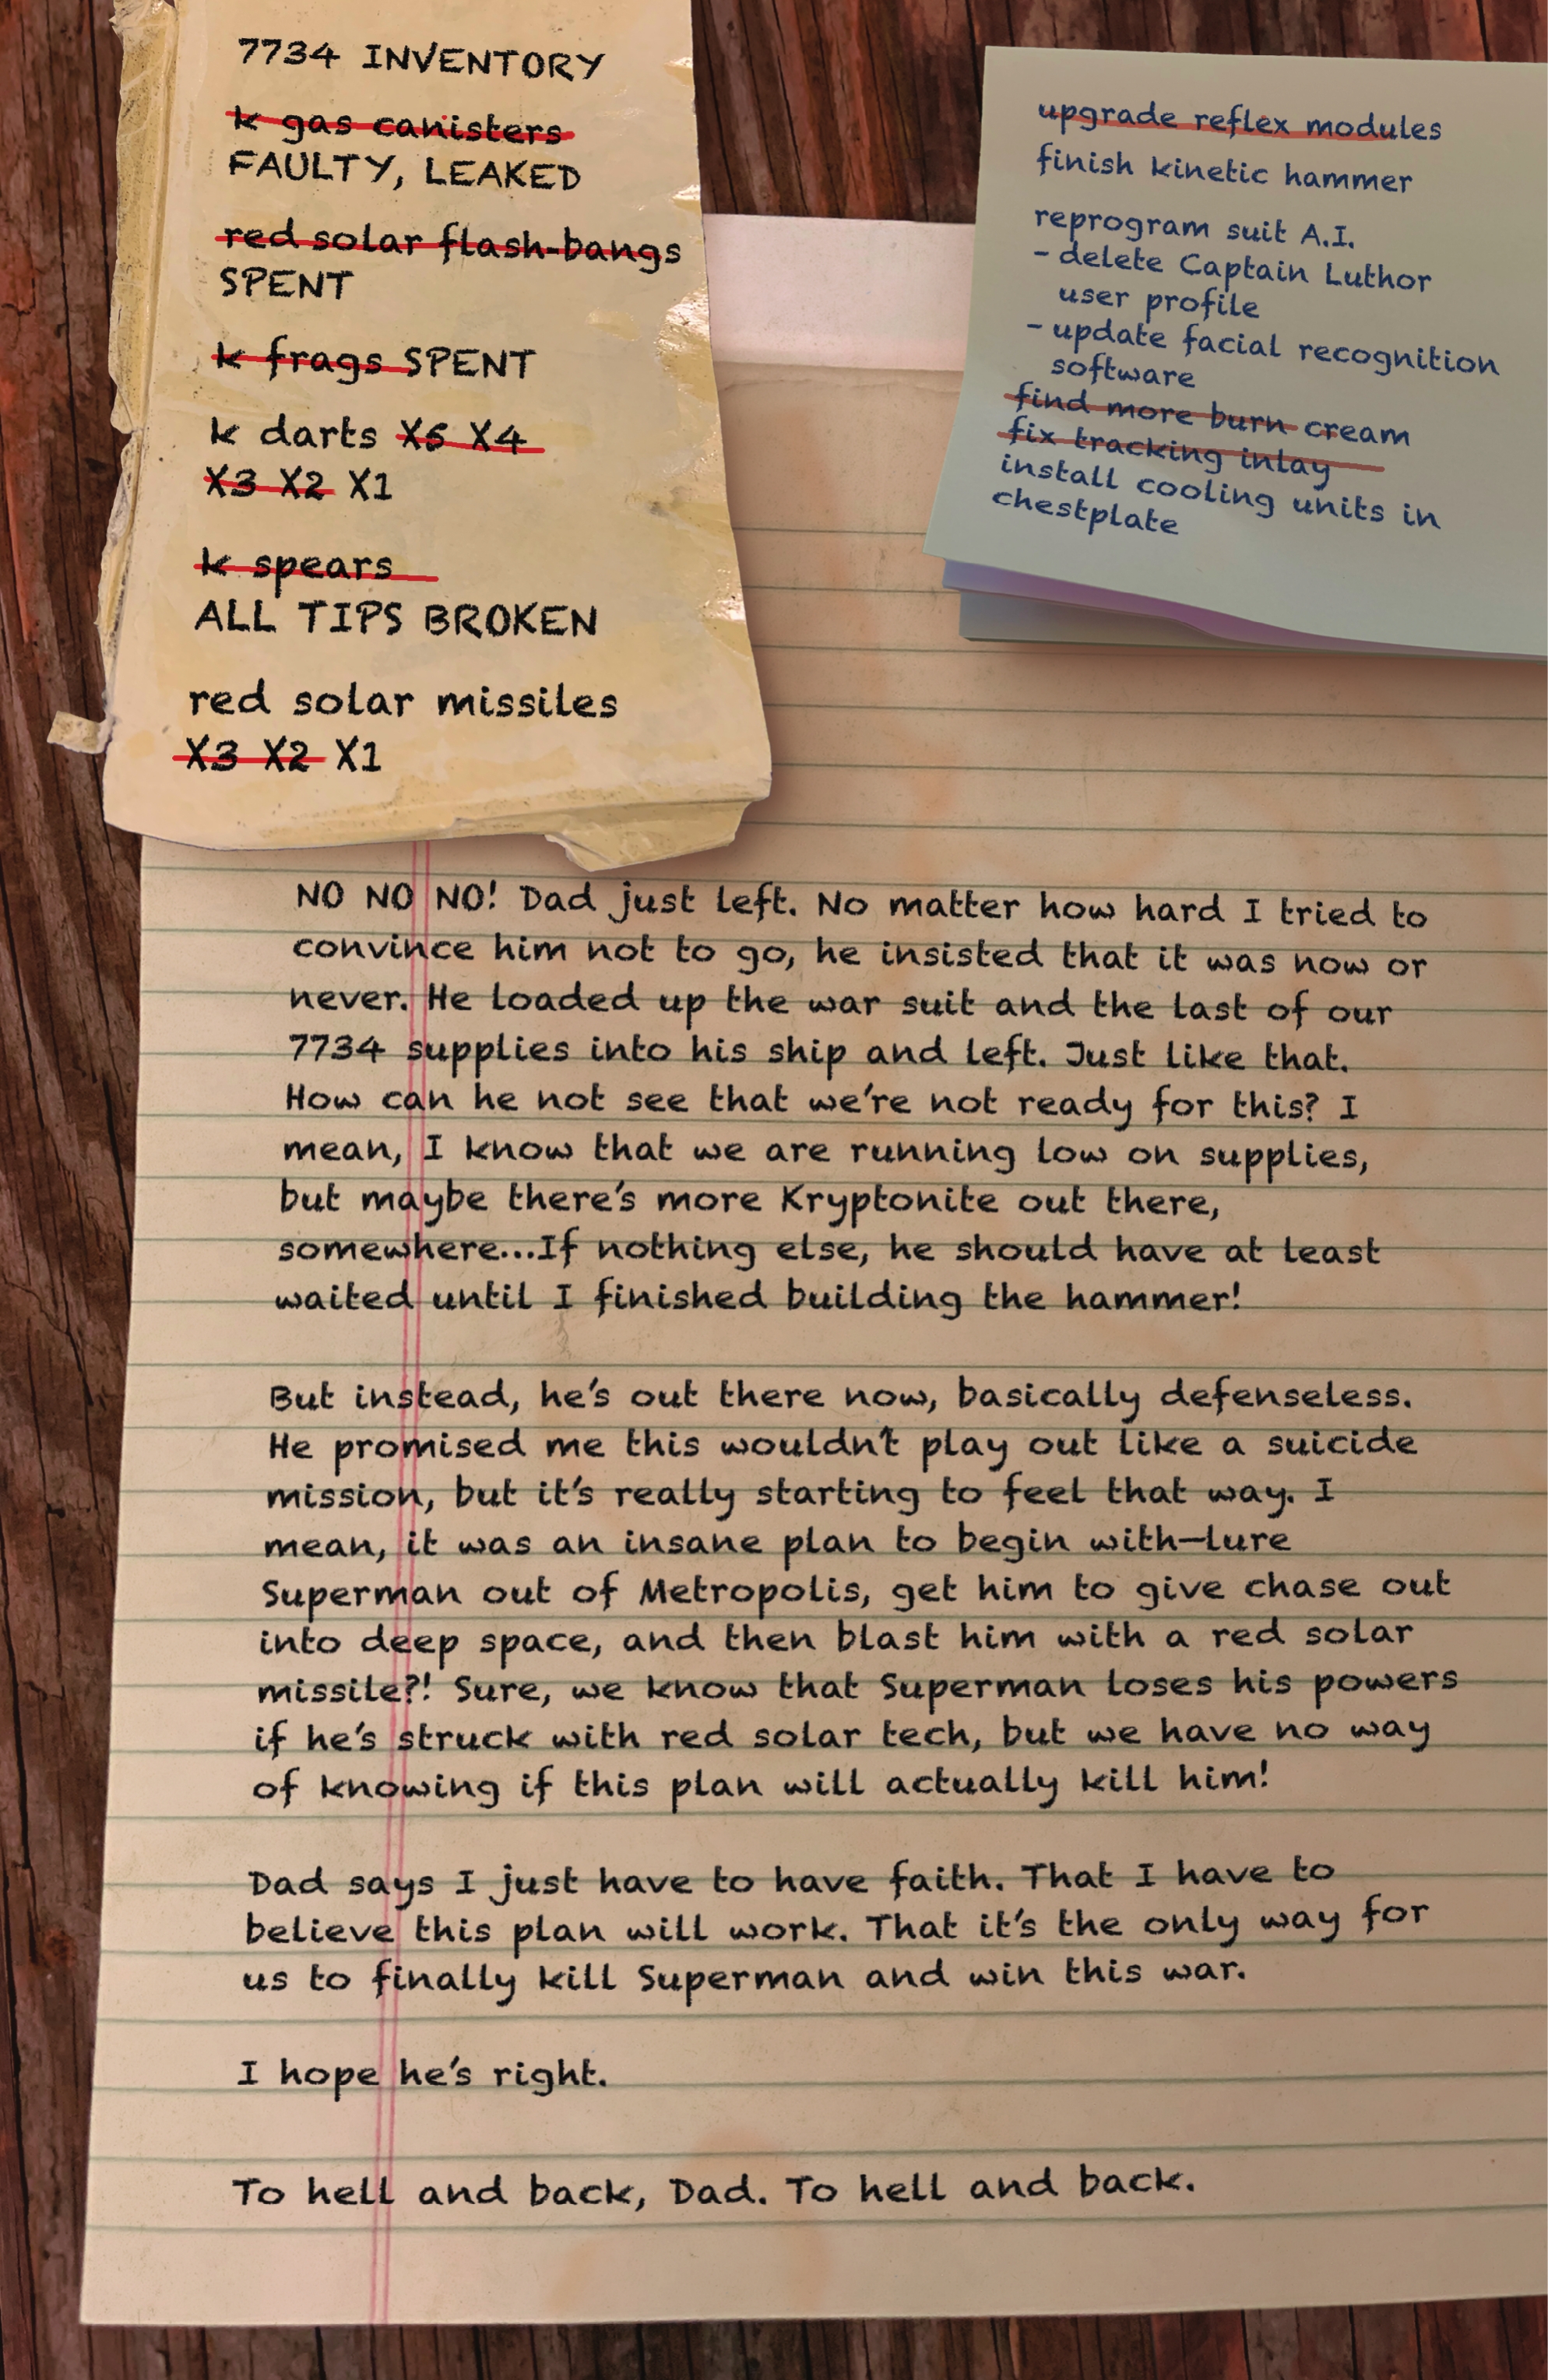 7734 INVENTORY
k gas canisters
FAULTY, LEAKED
red solar flash-bangs
SPENT
k frags SPENT
k darts X5 X4
X3 X2 X1
k spears
ALL TIPS BROKEN
red solar missiles
X3 X2 X1
upgrade reflex modules
finish kinetic hammer
reprogram suit A.I.
- delete Captain Luthor
user profile
- update facial recognition
software
find more burn cream
fix tracking inlay
install cooling units in
chestplate
NO NO NO! Dad just left. No matter how hard I tried to
convince him not to go, he insisted that it was now or
never. He loaded up the war suit and the last of our
7734 supplies into his ship and left. Just like that.
How can he not see that we're not ready for this? I
mean, I know that we are running low on supplies,
but maybe there's more Kryptonite out there,
somewhere...If nothing else, he should have at least
waited until I finished building the hammer!
But instead, he's out there now, basically defenseless.
He promised me this wouldn't play out like a suicide
mission, but it's really starting to feel that way. I
mean, it was an insane plan to begin with—lure
Superman out of Metropolis, get him to give chase out
into deep space, and then blast him with a red solar
missile?! Sure, we know that Superman loses his powers
if he's struck with red solar tech, but we have no way
of knowing if this plan will actually kill him!
Dad says I just have to have faith. That I have to
believe this plan will work. That it's the only way for
us to finally kill Superman and win this war.
I hope he's right.
To hell and back, Dad. To hell and back.